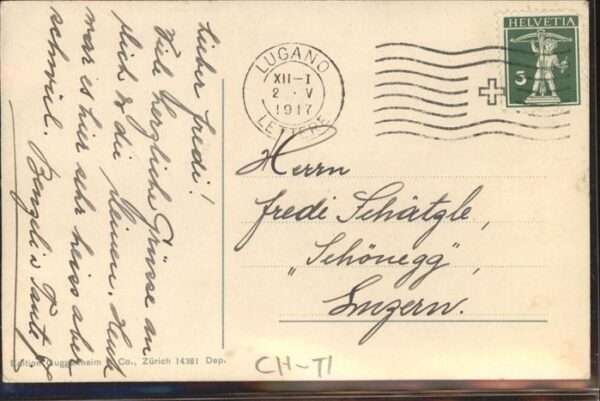 Lieber Fredi!
Viele herzliche Grüsse an
dich & die deinen. Heut
war es hier sehr heiss aber
schwül.
LUGANO
XII-I
2 · V
1917
LETTERE
HELVETIA
5
Herrn
Fredi Schätzle,
"Schönegg",
Luzern.
Edition Guggenheim & Co., Zürich 14381 Dep.
CH-TI